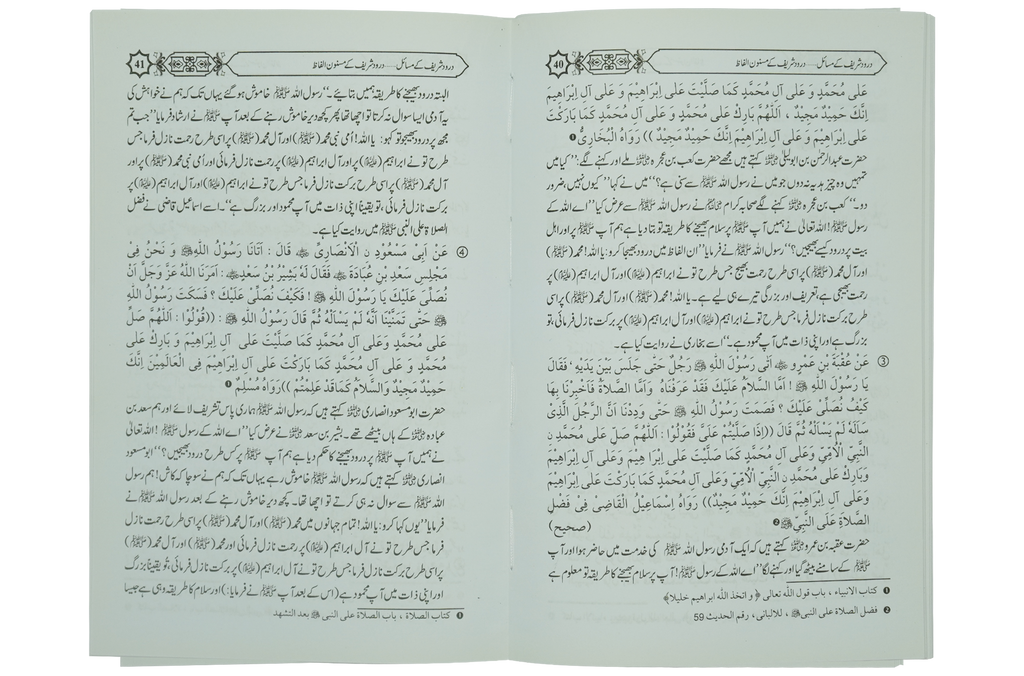 40
درود شریف کے مسائل — درود شریف کے مسنون الفاظ
عَلٰی مُحَمَّدٍ وَ عَلٰی آلِ مُحَمَّدٍ کَمَا صَلَّیْتَ عَلٰی اِبْرَاهِیْمَ وَ عَلٰی آلِ اِبْرَاهِیْمَ
اِنَّکَ حَمِیْدٌ مَجِیْدٌ ، اَللّٰهُمَّ بَارِکْ عَلٰی مُحَمَّدٍ وَ عَلٰی آلِ مُحَمَّدٍ کَمَا بَارَکْتَ
عَلٰی اِبْرَاهِیْمَ وَ عَلٰی آلِ اِبْرَاهِیْمَ اِنَّکَ حَمِیْدٌ مَجِیْدٌ )) رَوَاهُ الْبُخَارِیُّ ❶
حضرت عبدالرحمٰن بن ابولیلیٰ ؓ کہتے ہیں مجھے حضرت کعب بن عجرہ ؓ ملے اور کہنے لگے: ’’کیا میں
تمہیں وہ چیز ہدیہ نہ دوں جو میں نے رسول اللہ ﷺ سے سنی ہے؟‘‘ میں نے کہا ’’کیوں نہیں، ضرور
دو۔‘‘ کعب بن عجرہ ؓ کہنے لگے صحابہ کرام ؓ نے رسول اللہ ﷺ سے عرض کیا ’’اے اللہ کے
رسول ﷺ! اللہ تعالیٰ نے ہمیں آپ ﷺ پر سلام بھیجنے کا طریقہ تو بتا دیا ہے ہم آپ ﷺ پر اور اہل
بیت پر درود کیسے بھیجیں؟‘‘ رسول اللہ ﷺ نے فرمایا ’’ان الفاظ میں درود بھیجا کرو: یا اللہ! محمد(ﷺ)
اور آل محمد(ﷺ) پر اسی طرح رحمت بھیج جس طرح تو نے ابراہیم(علیہ السلام) اور آل ابراہیم(علیہ السلام) پر
رحمت بھیجی ہے، تعریف اور بزرگی تیرے ہی لیے ہے۔ یا اللہ! محمد(ﷺ) اور آل محمد(ﷺ) پر اسی
طرح برکت نازل فرما جس طرح تو نے ابراہیم(علیہ السلام) اور آل ابراہیم(علیہ السلام) پر برکت نازل فرمائی، تو
بزرگ ہے اور اپنی ذات میں آپ محمود ہے۔‘‘ اسے بخاری نے روایت کیا ہے۔
③ عَنْ عُقْبَةَ بْنِ عَمْرٍو ؓ اَتٰی رَسُوْلَ اللّٰهِ ﷺ رَجُلٌ حَتّٰی جَلَسَ بَیْنَ یَدَیْهِ ، فَقَالَ
یَا رَسُوْلَ اللّٰهِ ﷺ ! اَمَّا السَّلاَمُ عَلَیْکَ فَقَدْ عَرَفْنَاهُ وَاَمَّا الصَّلاَةُ فَاَخْبِرْنَا بِهَا
کَیْفَ نُصَلِّیْ عَلَیْکَ ؟ فَصَمَتَ رَسُوْلُ اللّٰهِ ﷺ حَتّٰی وَدِدْنَا اَنَّ الرَّجُلَ الَّذِیْ
سَاَلَهُ لَمْ یَسْاَلْهُ ثُمَّ قَالَ ((اِذَا صَلَّیْتُمْ عَلَیَّ فَقُوْلُوْا : اَللّٰهُمَّ صَلِّ عَلٰی مُحَمَّدِ نِ
النَّبِیِّ الْاُمِّیِّ وَعَلٰی آلِ مُحَمَّدٍ کَمَا صَلَّیْتَ عَلٰی اِبْرَا هِیْمَ وَ عَلٰی آلِ اِبْرَاهِیْمَ
وَبَارِکْ عَلٰی مُحَمَّدِ نِ النَّبِیِّ الْاُمِّیِّ وَعَلٰی آلِ مُحَمَّدٍ کَمَا بَارَکْتَ عَلٰی اِبْرَاهِیْمَ
وَعَلٰی آلِ اِبْرَاهِیْمَ اِنَّکَ حَمِیْدٌ مَجِیْدٌ)) رَوَاهُ اِسْمَاعِیْلُ الْقَاضِیْ فِیْ فَضْلِ
الصَّلاَةِ عَلَی النَّبِیِّ ﷺ ❷ (صحیح)
حضرت عقبہ بن عمرو ؓ کہتے ہیں کہ ایک آدمی رسول اللہ ﷺ کی خدمت میں حاضر ہوا اور آپ
ﷺ کے سامنے بیٹھ گیا اور کہنے لگا ’’اے اللہ کے رسول ﷺ! آپ پر سلام بھیجنے کا طریقہ تو معلوم ہے
❶ کتاب الانبیاء ، باب قول اللّٰه تعالی ﴿ و اتخذ اللّٰه ابراهیم خلیلا﴾
❷ فضل الصلاة علی النبی ﷺ ، للالبانی ، رقم الحدیث 59
41
درود شریف کے مسائل — درود شریف کے مسنون الفاظ
البتہ درود بھیجنے کا طریقہ ہمیں بتایئے۔‘‘ رسول اللہ ﷺ خاموش ہو گئے یہاں تک کہ ہم نے خواہش کی
یہ آدمی ایسا سوال نہ کرتا تو اچھا تھا پھر کچھ دیر خاموش رہنے کے بعد آپ ﷺ نے ارشاد فرمایا ’’جب تم
مجھ پر درود بھیجو تو کہو: یا اللہ! اُمی نبی محمد(ﷺ) اور آل محمد(ﷺ) پر اسی طرح رحمت نازل فرما جس
طرح تو نے ابراہیم(علیہ السلام) پر اور آل ابراہیم(علیہ السلام) پر رحمت نازل فرمائی اور اُمی نبی محمد(ﷺ) پر اور
آل محمد(ﷺ) پر اسی طرح برکت نازل فرما جس طرح تو نے ابراہیم(علیہ السلام) اور آل ابراہیم(علیہ السلام) پر
برکت نازل فرمائی، تو یقیناً اپنی ذات میں آپ محمود اور بزرگ ہے‘‘۔ اسے اسماعیل قاضی نے فضل
الصلاۃ علی النبی ﷺ میں روایت کیا ہے۔
④ عَنْ اَبِیْ مَسْعُوْدِ نِ الْاَنْصَارِیِّ ؓ قَالَ : اَتَانَا رَسُوْلُ اللّٰهِ ﷺ وَ نَحْنُ فِیْ
مَجْلِسِ سَعْدِ بْنِ عُبَادَةَ ؓ فَقَالَ لَهُ بَشِیْرُ بْنُ سَعْدٍ ؓ : اَمَرَنَا اللّٰهُ عَزَّ وَجَلَّ اَنْ
نُصَلِّیَ عَلَیْکَ یَا رَسُوْلَ اللّٰهِ ﷺ ! فَکَیْفَ نُصَلِّیْ عَلَیْکَ ؟ فَسَکَتَ رَسُوْلُ اللّٰهِ
ﷺ حَتّٰی تَمَنَّیْنَا اَنَّهُ لَمْ یَسْاَلْهُ ثُمَّ قَالَ رَسُوْلُ اللّٰهِ ﷺ : ((قُوْلُوْا : اَللّٰهُمَّ صَلِّ
عَلٰی مُحَمَّدٍ وَعَلٰی آلِ مُحَمَّدٍ کَمَا صَلَّیْتَ عَلٰی آلِ اِبْرَاهِیْمَ وَ بَارِکْ عَلٰی
مُحَمَّدٍ وَ عَلٰی آلِ مُحَمَّدٍ کَمَا بَارَکْتَ عَلٰی آلِ اِبْرَاهِیْمَ فِی الْعَالَمِیْنَ اِنَّکَ
حَمِیْدٌ مَجِیْدٌ وَالسَّلاَمُ کَمَا قَدْ عَلِمْتُمْ )) رَوَاهُ مُسْلِمٌ ❶
حضرت ابومسعود انصاری ؓ کہتے ہیں کہ رسول اللہ ﷺ ہماری پاس تشریف لائے اور ہم سعد بن
عبادہ ؓ کے ہاں بیٹھے تھے۔ بشیر بن سعد ؓ نے عرض کیا ’’اے اللہ کے رسول ﷺ! اللہ تعالیٰ
نے ہمیں آپ ﷺ پر درود بھیجنے کا حکم دیا ہے ہم آپ ﷺ پر کس طرح درود بھیجیں؟‘‘ ابومسعود
انصاری ؓ کہتے ہیں کہ رسول اللہ ﷺ خاموش رہے یہاں تک کہ ہم نے سوچا کہ کاش! ہم رسول
اللہ ﷺ سے سوال نہ ہی کرتے تو اچھا تھا۔ کچھ دیر خاموش رہنے کے بعد رسول اللہ ﷺ نے
فرمایا ’’یوں کہا کرو: یا اللہ! تمام جہانوں میں محمد(ﷺ) اور آل محمد(ﷺ) پر اسی طرح رحمت نازل
فرما جس طرح تو نے آل ابراہیم(علیہ السلام) پر رحمت نازل فرمائی اور محمد(ﷺ) اور آل محمد(ﷺ)
پر اسی طرح برکت نازل فرما جس طرح تو نے آل ابراہیم(علیہ السلام) پر برکت نازل فرمائی، تو یقیناً بزرگ
اور اپنی ذات میں آپ محمود ہے (اس کے بعد آپ ﷺ نے فرمایا:) اور سلام کا طریقہ وہی ہے جیسا
❶ کتاب الصلاة ، باب الصلاة علی النبی ﷺ بعد التشهد